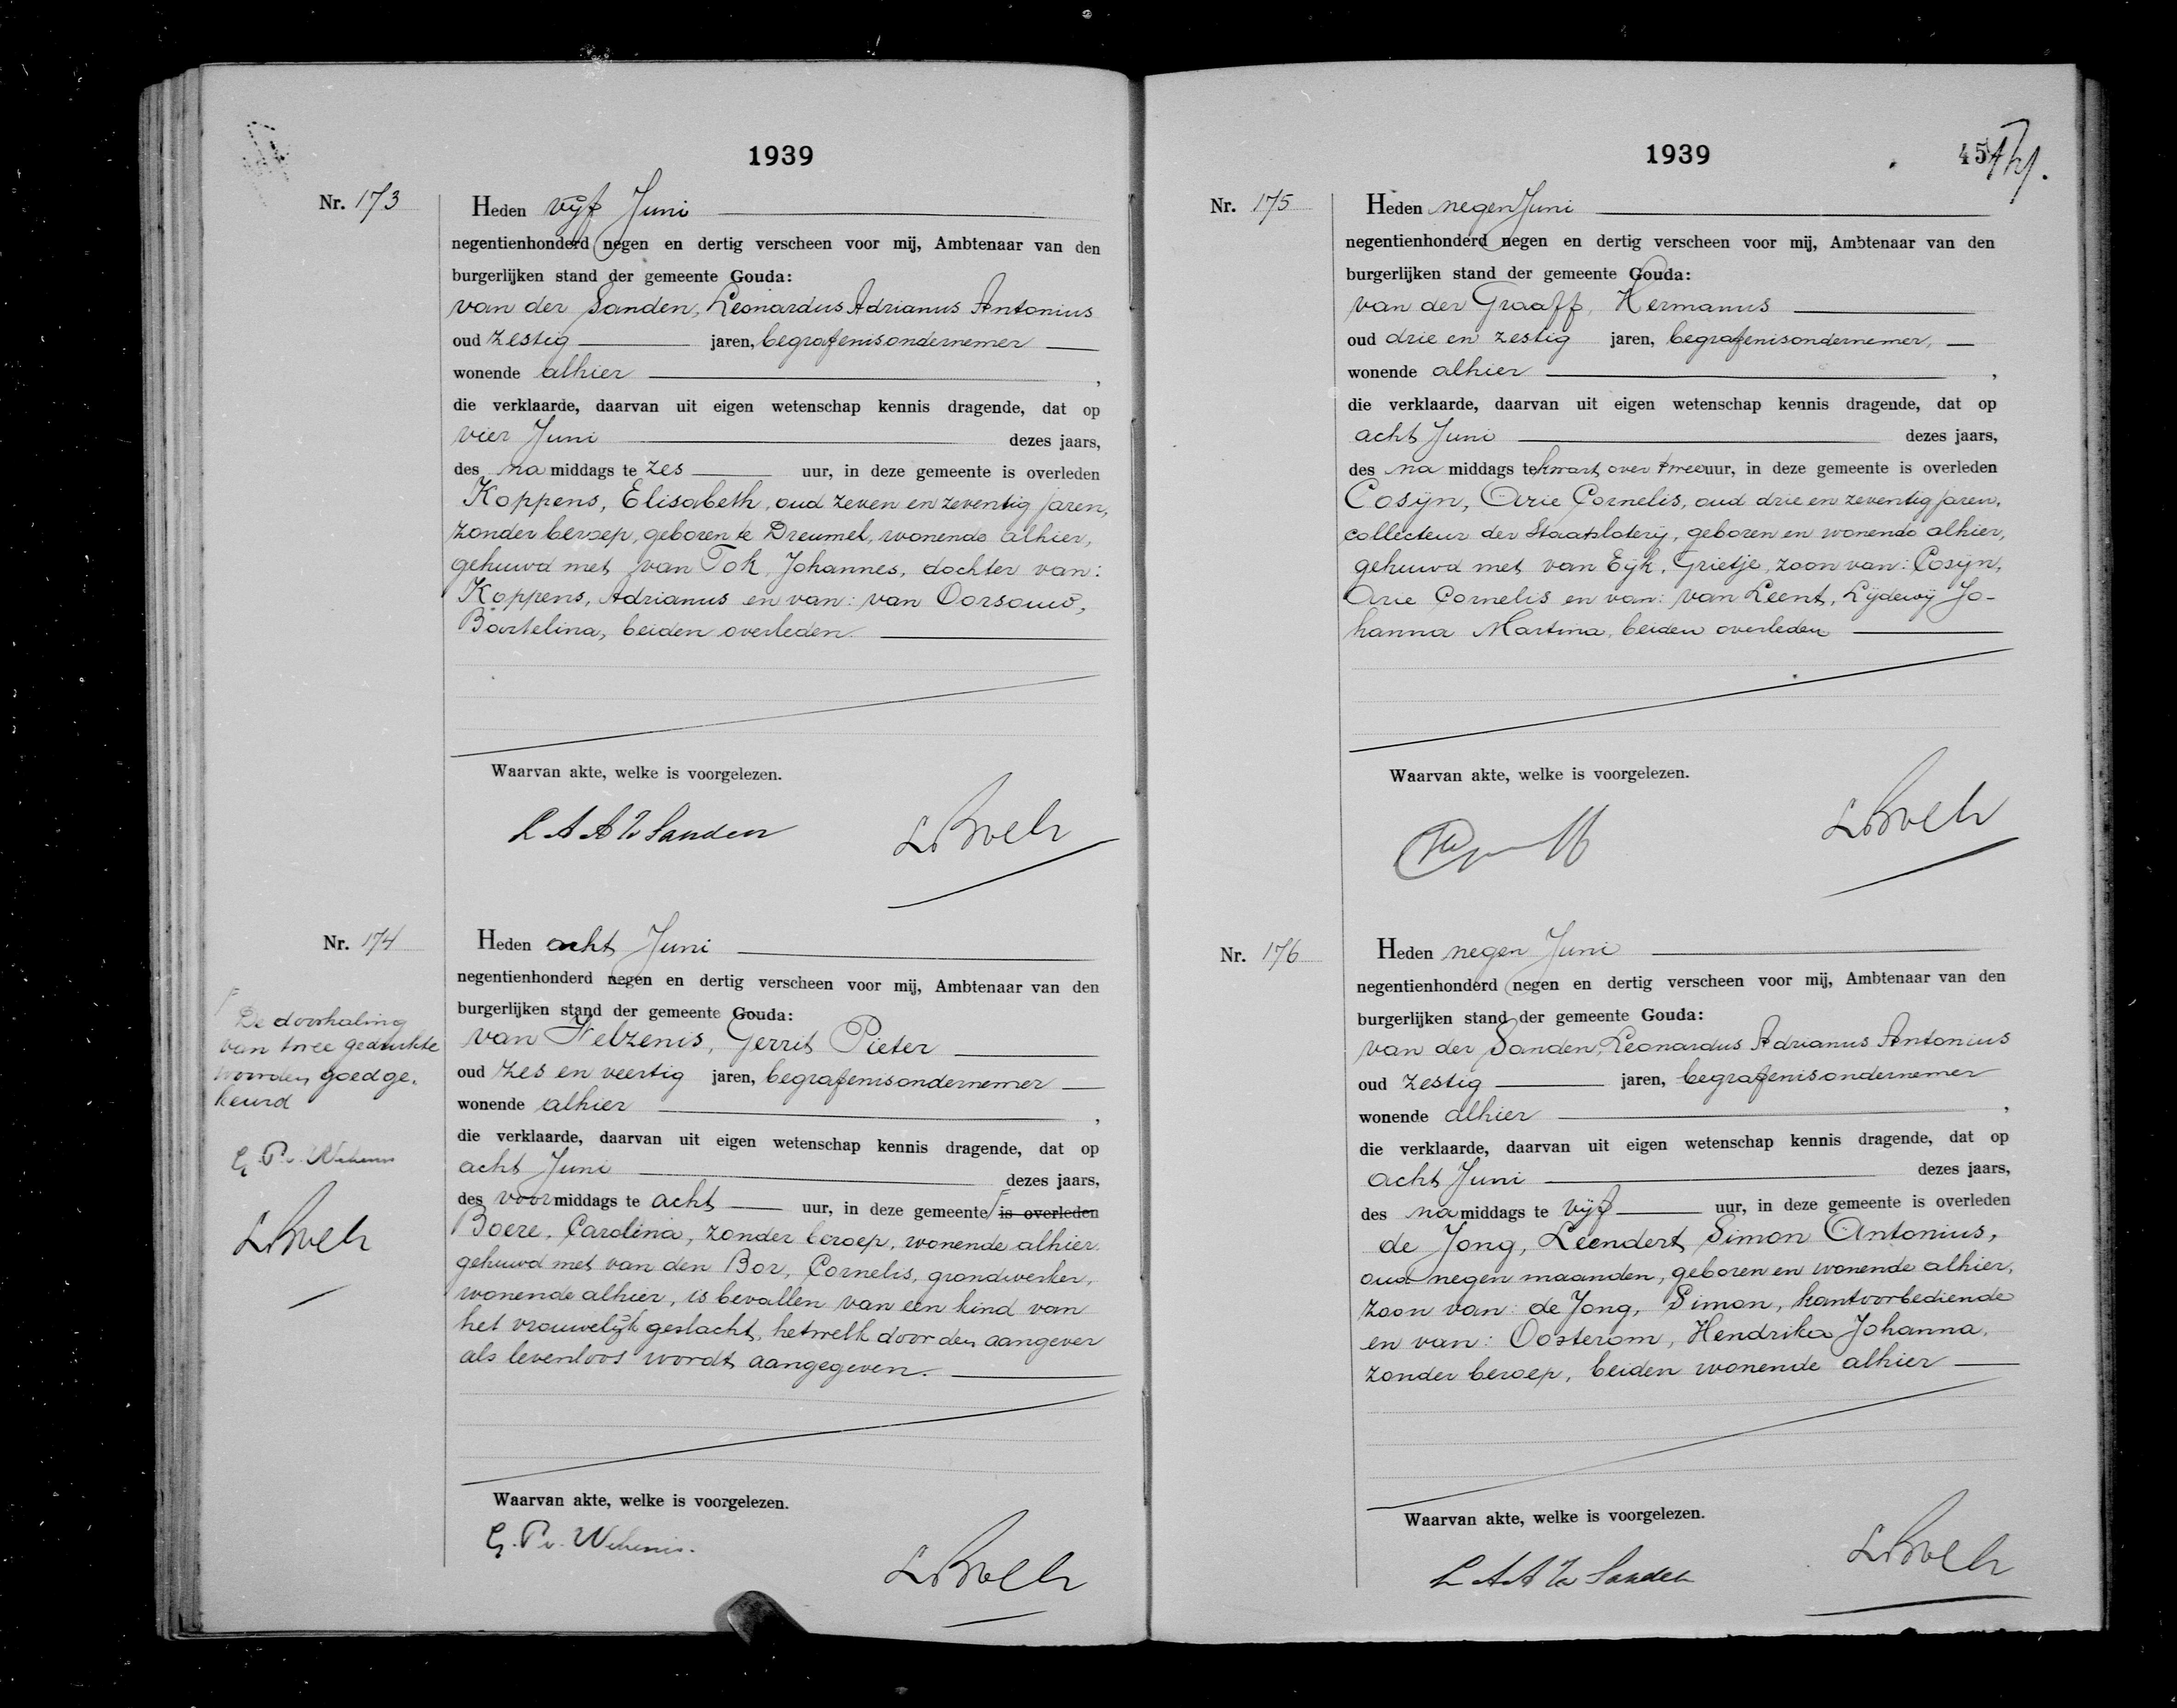 1939
Nr. 173
Heden vijf Juni
negentienhonderd negen en dertig verscheen voor mij, Ambtenaar van den
burgerlijken stand der gemeente Gouda:
van der Sanden, Leonardus Adrianus Antonius
oud zestig jaren, begrafenisondernemer
wonende alhier ,
die verklaarde, daarvan uit eigen wetenschap kennis dragende, dat op
vier Juni dezes jaars,
des na middags te zes uur, in deze gemeente is overleden
Koppens, Elisabeth, oud zeven en zeventig jaren,
zonder beroep, geboren te Dreumel, wonende alhier,
gehuwd met van Tok, Johannes, dochter van:
Koppens, Adrianus en van: van Oorsouw,
Bartelina, beiden overleden.
Waarvan akte, welke is voorgelezen.
L A A vd Sanden
Nr. 174
De doorhaling
van twee gedrukte
woorden goedge-
keurd
Heden acht Juni
negentienhonderd negen en dertig verscheen voor mij, Ambtenaar van den
burgerlijken stand der gemeente Gouda:
van Welzenis, Gerrit Pieter
oud zes en veertig jaren, begrafenisondernemer
wonende alhier ,
die verklaarde, daarvan uit eigen wetenschap kennis dragende, dat op
acht Juni dezes jaars,
des voormiddags te acht uur, in deze gemeente is overleden
Boere, Carolina, zonder beroep, wonende alhier
gehuwd met van den Bor, Cornelis, grondwerker,
wonende alhier, is bevallen van een kind van
het vrouwelijk geslacht, hetwelk door den aangever
als levenloos wordt aangegeven.
Waarvan akte, welke is voorgelezen.
1939
45
Nr. 175
Heden negen Juni
negentienhonderd negen en dertig verscheen voor mij, Ambtenaar van den
burgerlijken stand der gemeente Gouda:
van der Graaff, Hermanus
oud drie en zestig jaren, begrafenisondernemer,
wonende alhier ,
die verklaarde, daarvan uit eigen wetenschap kennis dragende, dat op
acht Juni dezes jaars,
des na middags te kwart over twee uur, in deze gemeente is overleden
Cosijn, Arie Cornelis, oud drie en zeventig jaren,
collecteur der Staatsloterij, geboren en wonende alhier,
gehuwd met van Eijk, Grietje, zoon van: Cosijn,
Arie Cornelis en van: van Leent, Lijdewij Jo-
hanna Martina, beiden overleden
Waarvan akte, welke is voorgelezen.
Nr. 176
Heden negen Juni
negentienhonderd negen en dertig verscheen voor mij, Ambtenaar van den
burgerlijken stand der gemeente Gouda:
van der Sanden, Leonardus Adrianus Antonius
oud zestig jaren, begrafenisondernemer
wonende alhier ,
die verklaarde, daarvan uit eigen wetenschap kennis dragende, dat op
acht Juni dezes jaars,
des na middags te vijf uur, in deze gemeente is overleden
de Jong, Leendert Simon Antonius,
oud negen maanden, geboren en wonende alhier,
zoon van: de Jong, Simon, kantoorbediende
en van: Oosterom, Hendrika Johanna,
zonder beroep, beiden wonende alhier
Waarvan akte, welke is voorgelezen.
L A A vd Sanden